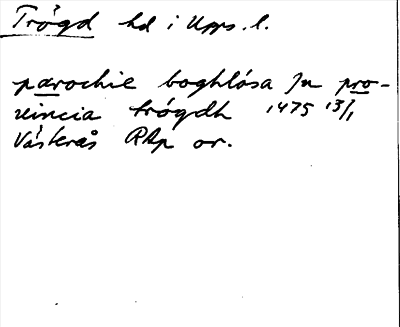 Trögd hd i Upps. l.
parochie boghlösa Jn pro-
uincia trögdh 1475 13/1
Västerås RAp or.